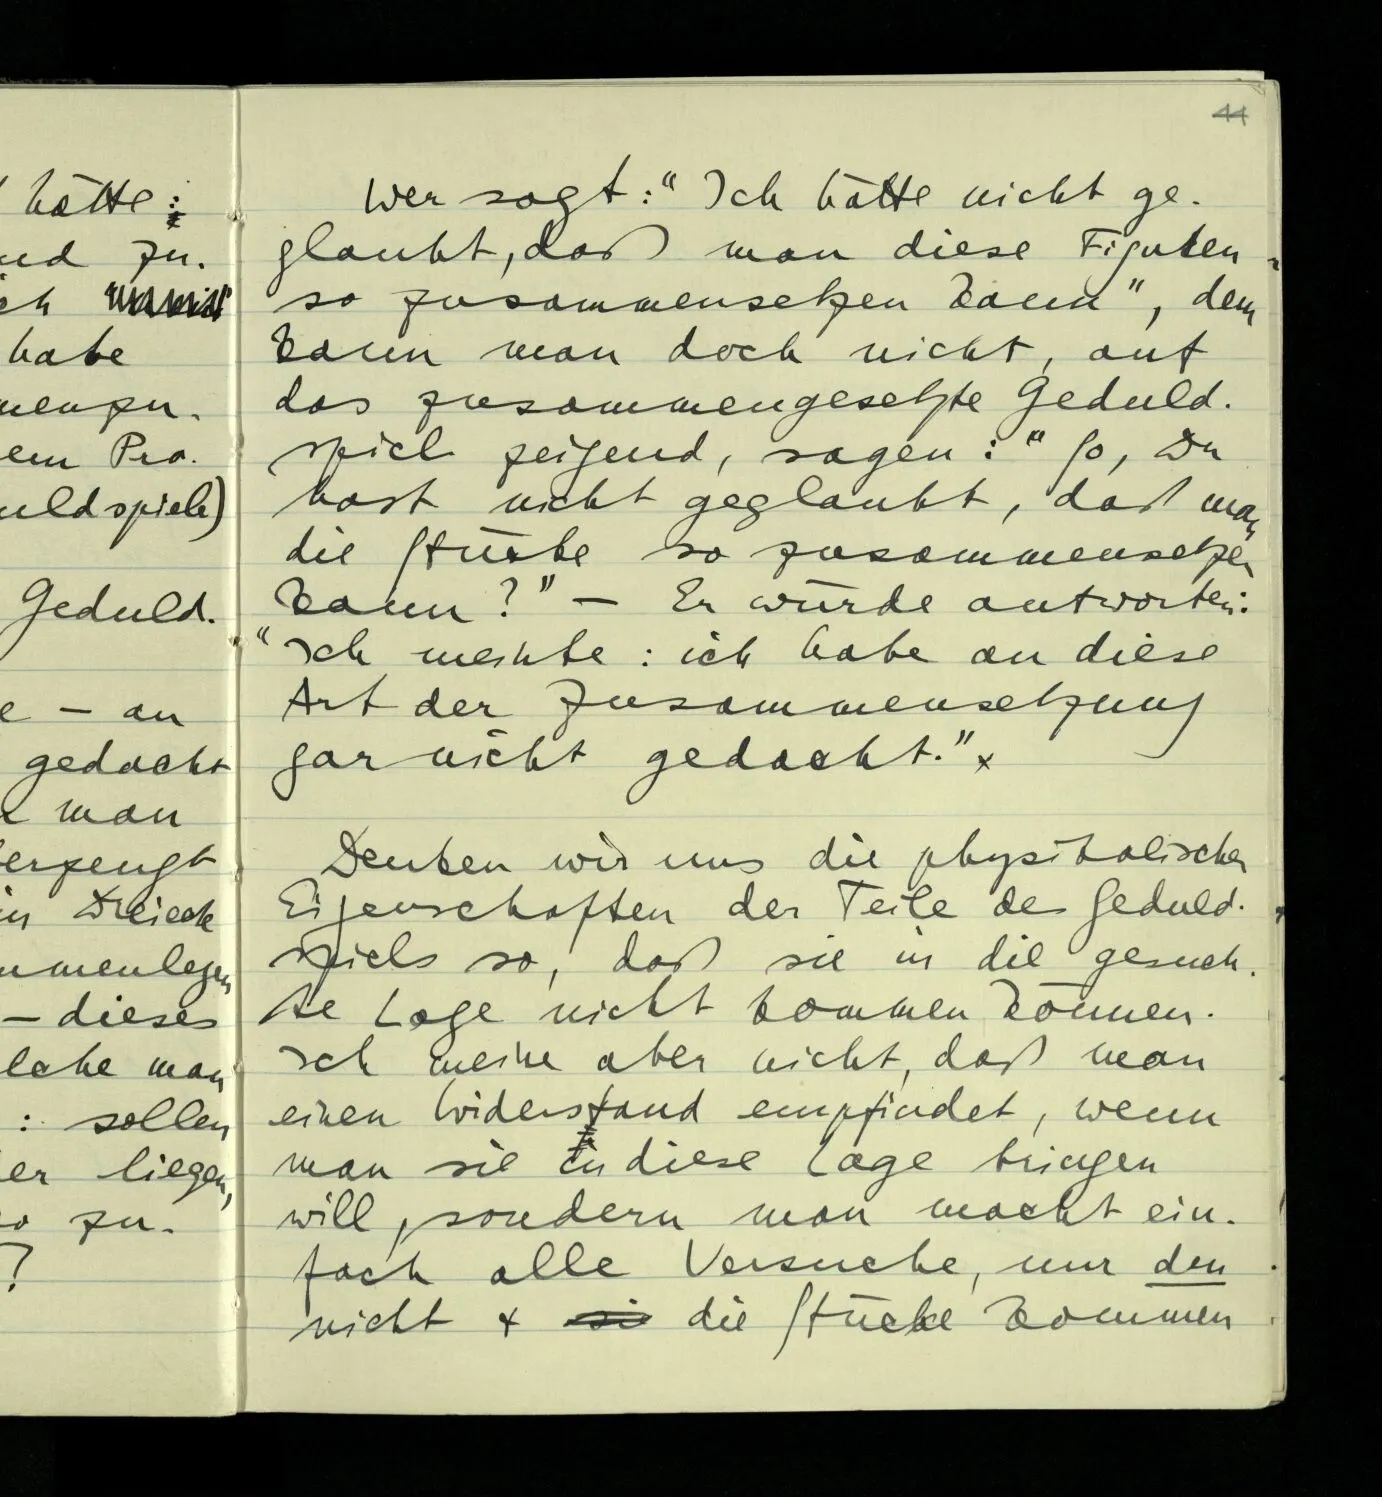 hätte :
nd zu.
ch
habe
menzu.
em Pro.
uldspiele)
Geduld.
e – an
gedacht
man
erzeugt
in Dreieck
mmenlegen
– dieses
lche man
: sollen
er liegen,
so zu.
?
44
Wer sagt :“ Ich hätte nicht ge.
glaubt, daß man diese Figuren
so zusammensetzen kann”, dem
kann man doch nicht, auf
das zusammengesetzte Geduld.
spiel zeigend, sagen : “ So, Du
hast nicht geglaubt, daß man
die Stücke so zusammensetzen
kann ?” – Er würde antworten:
“Ich meinte : ich habe an diese
Art der Zusammensetzung
gar nicht gedacht.” x
Denken wir uns die physikalischen
Eigenschaften der Teile des Geduld.
spiels so, daß sie in die gesuch.
te Lage nicht kommen können.
Ich meine aber nicht, daß man
einen Widerstand empfindet, wenn
man sie in diese Lage bringen
will, sondern man macht ein.
fach alle Versuche, nur den
nicht + si die Stücke kommen